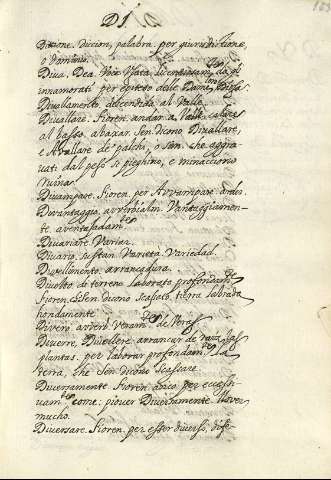 DI.
Dizione. Dicion, palabra. per giurisdittione,
o dominio
Diua. Dea. Voce Vsata
innamorati per epiteto delle Dame. Diosa.
Diuallamento. descendida, al Valle.
Diuallare. Fioren. andar a Valle, calare
al basso. abaxar. Sen. dicono Diuallare,
e Auallare de' palchi, o sim. che aggra-
uati dal peso si pieghino, e minaccino
ruina.
Diuampare. Fioren. per Avvampare. arder.
Diuantaggio. avverbialm. Vantaggiamen-
te. aventajadam.te
Diuariare. Variar.
Diuario. sustan. Varietà. Variedad.
Diuellimento. arrancadura.
Diuelto. di terreno laborato profondam.te
Fioren. e i Sen. dicono Scassato. tierra labrada
hondamente
Diuero. auuerb. veram.te de Veras
Diuerre, Diuellere. arrancar de las
plantas. per laborar profondam.te la
terra, che Sen. dicono Scassare.
Diuersamente. Fioren. dico per eccessi-
uam.te come: piouer Diuersamente. llover
mucho.
Diuersare. Fioren. per esser diuerso, dife-